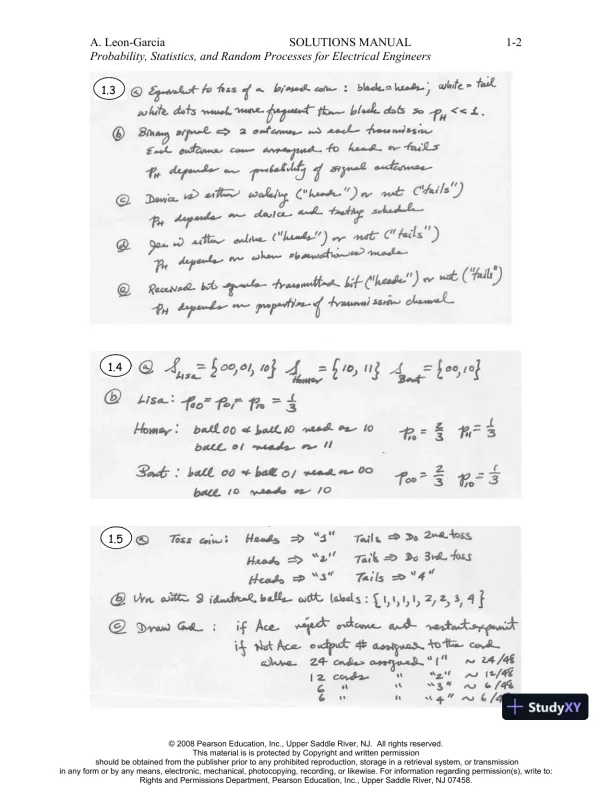 A. Leon-Garcia SOLUTIONS MANUAL 1-2
Probability, Statistics, and Random Processes for Electrical Engineers
1.3 (a) Equivalent to toss of a biased coin : black = heads ; white = tail
white dots much more frequent than black dots so pH << 1.
(b) Binary signal ⇒ 2 outcomes in each transmission
Each outcome can correspond to heads or tails
pH depends on probability of signal outcomes
(c) Device is either working ("heads") or not ("tails")
pH depends on device and testing schedule
(d) Joe is either online ("heads") or not ("tails")
pH depends on when observation is made
(e) Received bit equals transmitted bit ("heads") or not ("tails")
pH depends on properties of transmission channel
1.4 (a) S Lisa = {00, 01, 10} S Homer = {10, 11} S Bart = {00, 10}
(b) Lisa : p00 = p01 = p10 = 1/3
Homer : ball 00 & ball 10 read as 10 p10 = 2/3 p11 = 1/3
ball 01 reads as 11
Bart : ball 00 & ball 01 read as 00 p00 = 2/3 p10 = 1/3
ball 10 reads as 10
1.5 (a) Toss coin : Heads ⇒ "1" Tails ⇒ Do 2nd toss
Heads ⇒ "2" Tails ⇒ Do 3rd toss
Heads ⇒ "3" Tails ⇒ "4"
(b) Urn with 8 identical balls with labels : {1,1,1,1,2,2,3,4}
(c) Draw Card : if Ace reject outcome and restart experiment
if Not Ace output # assigned to the card
where 24 cards assigned "1" ~ 24/48
12 cards " "2" ~ 12/48
6 " " "3" ~ 6/48
6 " " "4" ~ 6/4
StudyXY
© 2008 Pearson Education, Inc., Upper Saddle River, NJ. All rights reserved.
This material is is protected by Copyright and written permission
should be obtained from the publisher prior to any prohibited reproduction, storage in a retrieval system, or transmission
in any form or by any means, electronic, mechanical, photocopying, recording, or likewise. For information regarding permission(s), write to:
Rights and Permissions Department, Pearson Education, Inc., Upper Saddle River, NJ 07458.